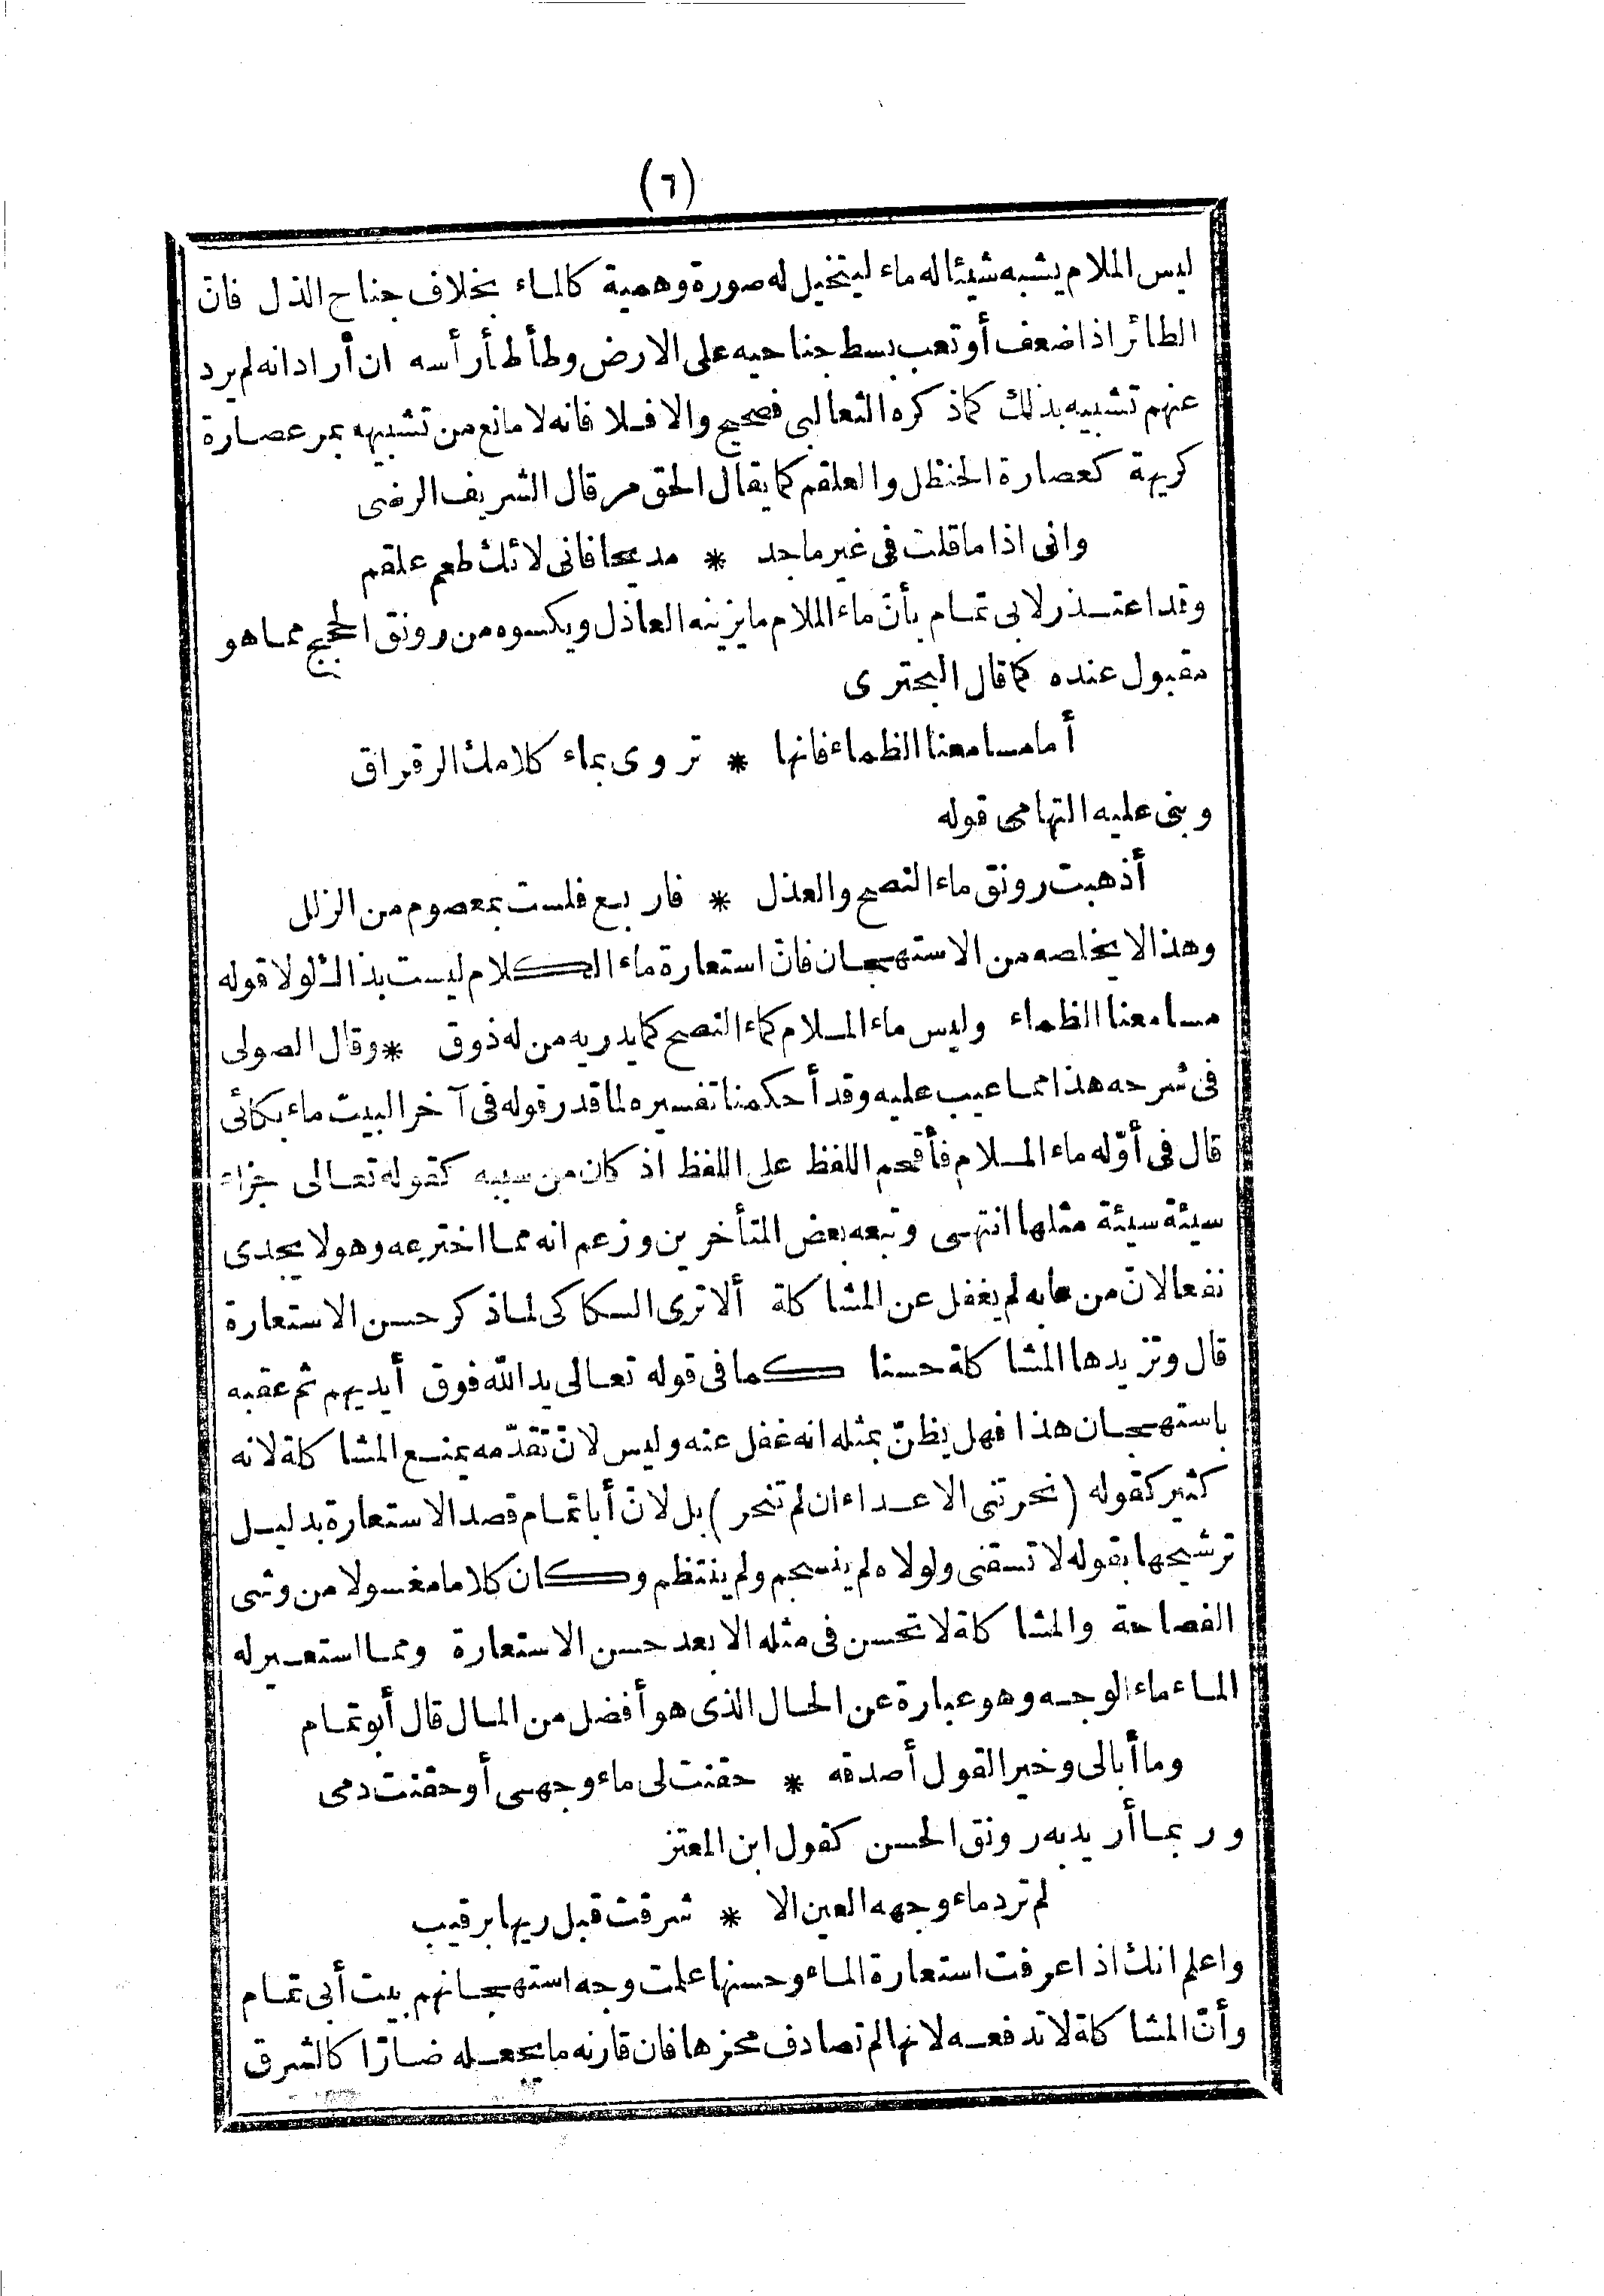 (٦)
ليس الملام يشبه شيئا له ماء ليتخيل له صورة وهمية كالماء بخلاف جناح الذل فانّ
الطائر اذا ضعف أو تعب بسط جناحيه على الارض وطأطأ رأسه ان أراد انه لم يرد
عنهم تشبيه بذلك كما ذكره الثعالبي فصحيح والا فلا فانه لا مانع من تشبيهه بمر عصارة
كريهة كعصارة الحنظل والعلقم كما يقال الحق مر قال الشريف الرضى
وانى اذا ما قلت فى غير ماجد * مديحا فانى لائك طعم علقم
وقد اعتذر لابى تمام بأنّ ماء الملام ما يزينه العاذل ويكسوه من رونق الحجج مما هو
مقبول عنده كما قال البحترى
أما مسامعنا الظماء فانها * تروى بماء كلامك الرقراق
وبنى عليه التهامى قوله
أذهبت رونق ماء النصح والعذل * فاربع فلست بمعصوم من الزلل
وهذا لا يخلصه من الاستهجان فانّ استعارة ماء الكلام ليست بذاك لولا قوله
مسامعنا الظماء وليس ماء الملام كماء النصح كما يدريه من له ذوق * وقال الصولى
فى شرحه هذا مما عيب عليه وقد أحكمنا تفسيره لما قدر قوله فى آخر البيت ماء بكائى
قال فى أوّله ماء الملام فأقحم اللفظ على اللفظ اذ كان من سببه كقوله تعالى جزاء
سيئة سيئة مثلها انتهى وتبعه بعض المتأخرين وزعم انه مما اخترعه وهو لا يجدى
نفعا لانّ من عابه لم يغفل عن المشاكلة ألا ترى السكاكى لما ذكر حسن الاستعارة
قال وتزيدها المشاكلة حسنا كما فى قوله تعالى يد الله فوق أيديهم ثم عقبه
باستهجان هذا فهل يظنّ بمثله انه غفل عنه وليس لانّ تقدّمه يمنع المشاكلة لانه
كثير كقوله (نحرتنى الاعداء ان لم تنحر) بل لانّ أبا تمام قصد الاستعارة بدليل
ترشيحها بقوله لا تسقنى ولولاه لم ينسجم ولم ينتظم وكان كلاما مغسولا من وشى
الفصاحة والمشاكلة لا تحسن فى مثله الا بعد حسن الاستعارة ومما استعير له
الماء ماء الوجه وهو عبارة عن الحال الذى هو أفضل من المال قال أبو تمام
وما أبالى وخير القول أصدقه * حقنت لى ماء وجهى أو حقنت دمى
وربما أريد به رونق الحسن كقول ابن المعتز
لم ترد ماء وجهه العين الا * شرقت قبل ريها برقيب
واعلم انك اذا عرفت استعارة الماء وحسنها علمت وجه استهجانهم بيت أبى تمام
وأنّ المشاكلة لا تدفعه لانها لم تصادف محزها فان قارنه ما يجعله ضارّا كالشرق